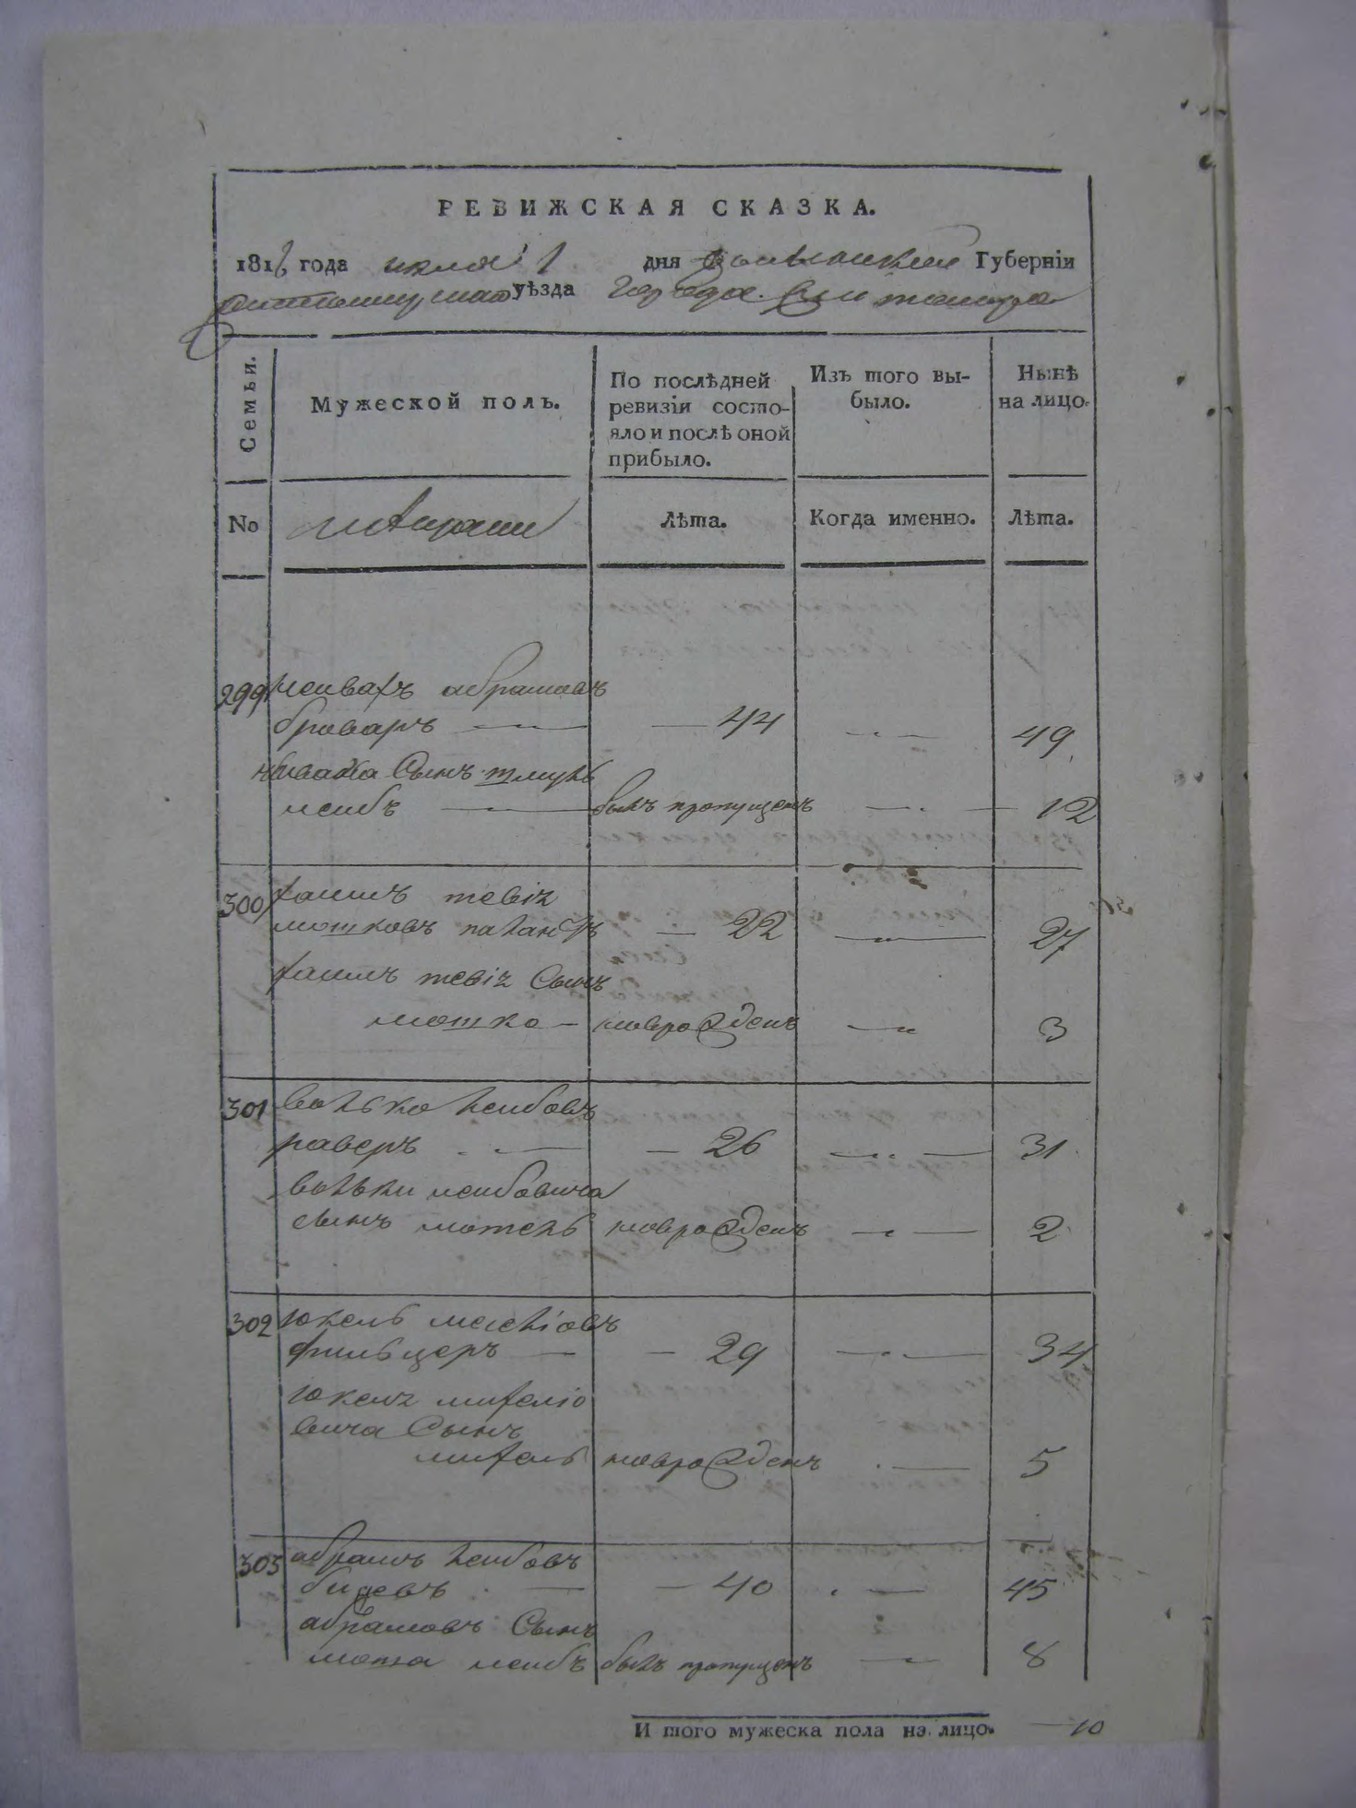 РЕВИЖСКАЯ СКАЗКА.
1816 года июля 1 дня Волынской Губернїи
Житомирскаго уѣзда города Житомира
Семьи.
Мужеской полъ.
По послѣдней
ревизїи состо-
яло и послѣ оной
прибыло.
Изъ того вы-
было.
Нынѣ
на лицо.
No
Лѣта.
Когда именно.
Лѣта.
299 абрамовъ
броваръ — 44 — 49
сынъ шмуль
лейбъ — былъ пропущенъ — 12
300 хаимъ тевіе
мошковъ — 22 — 27
хаимъ тевіе сынъ
мошко — новрожденъ — 3
301 волько лейбовъ
— 26 — 31
вольки лейбовича
сынъ мотель новрожденъ — 2
302 юкель
фильцеръ — 29 — 34
юкеля
вича сынъ
михель новрожденъ — 5
303 абрамъ лейбовъ
— 40 — 45
абрамовъ сынъ
лейбъ былъ пропущенъ — 8
И того мужеска пола на лицо. — 10